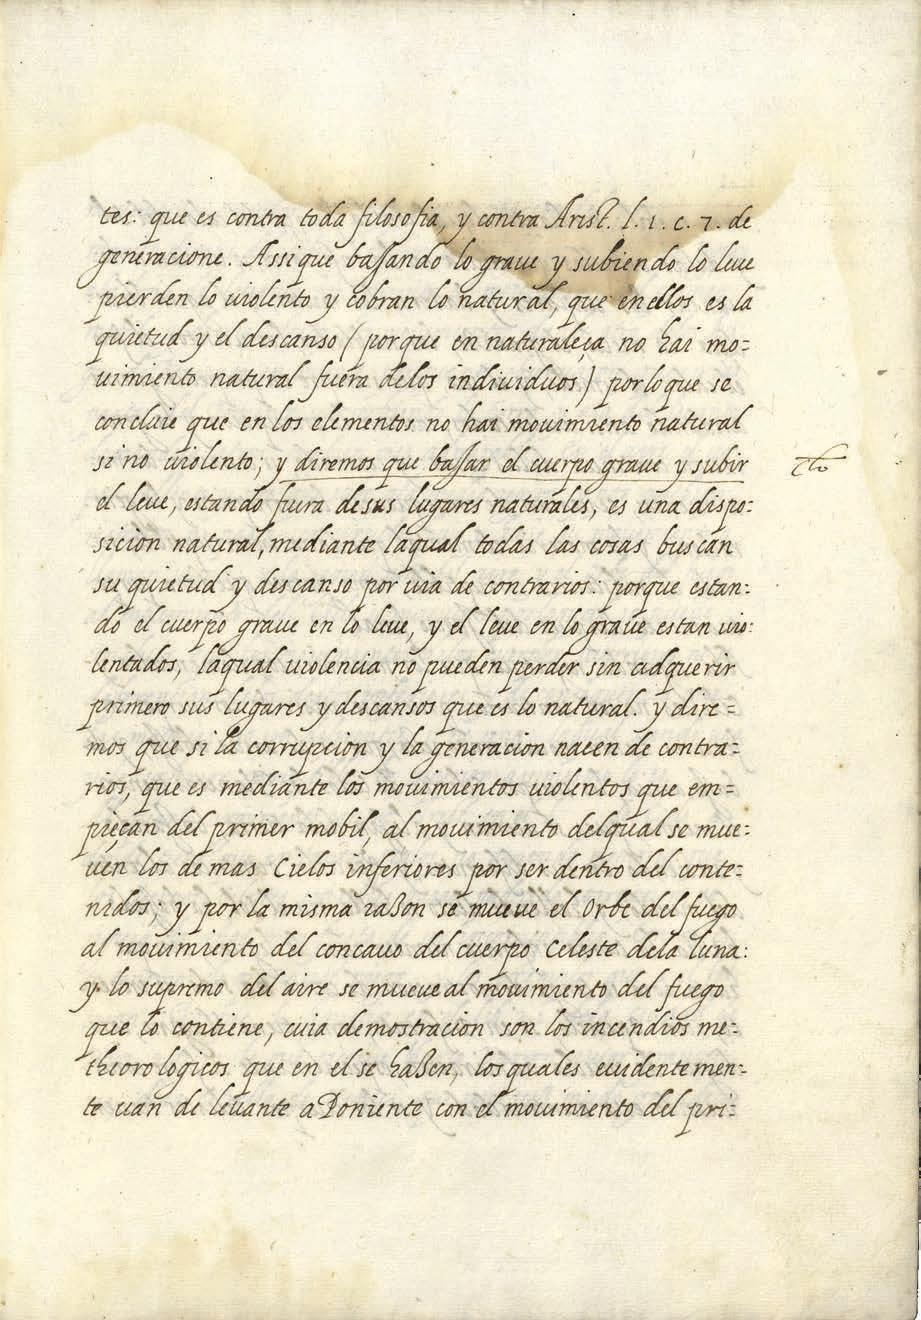 tes: que es contra toda filosofia, y contra Arist. l. 1. c. 7. de
generacione. Assi que baſando lo grave y subiendo lo leve
pierden lo violento y cobran lo natural, que en ellos es la
quietud y el descanso (porque en naturaleça no hai mo=
uimiento natural fuera delos individuos) por lo que se
concluie que en los elementos no hai movimiento natural
si no violento; y diremos que baſar el cuerpo grave y subir
el leve, estando fuera de sus lugares naturales, es una dispo=
sicion natural, mediante laqual todas las cosas buscan
su quietud y descanso por via de contrarios: porque estan=
do el cuerpo grave en lo leve, y el leve en lo grave estan vio=
lentados, laqual violencia no pueden perder sin adquerir
primero sus lugares y descansos que es lo natural. y dire=
mos que si la corrupcion y la generacion nacen de contra=
rios, que es mediante los movimientos violentos que em=
pieçan del primer mobil, al movimiento delqual se mue=
ven los de mas Cielos inferiores por ser dentro del conte=
nidos; y por la misma raßon se mueve el Orbe del fuego
al movimiento del concavo del cuerpo Celeste dela luna:
y lo supremo del aire se mueve al movimiento del fuego
que lo contiene, cuia demostracion son los incendios me=
theorologicos que en el se haßen, los quales evidentemen=
te van de levante a Poniente con el movimiento del pri=